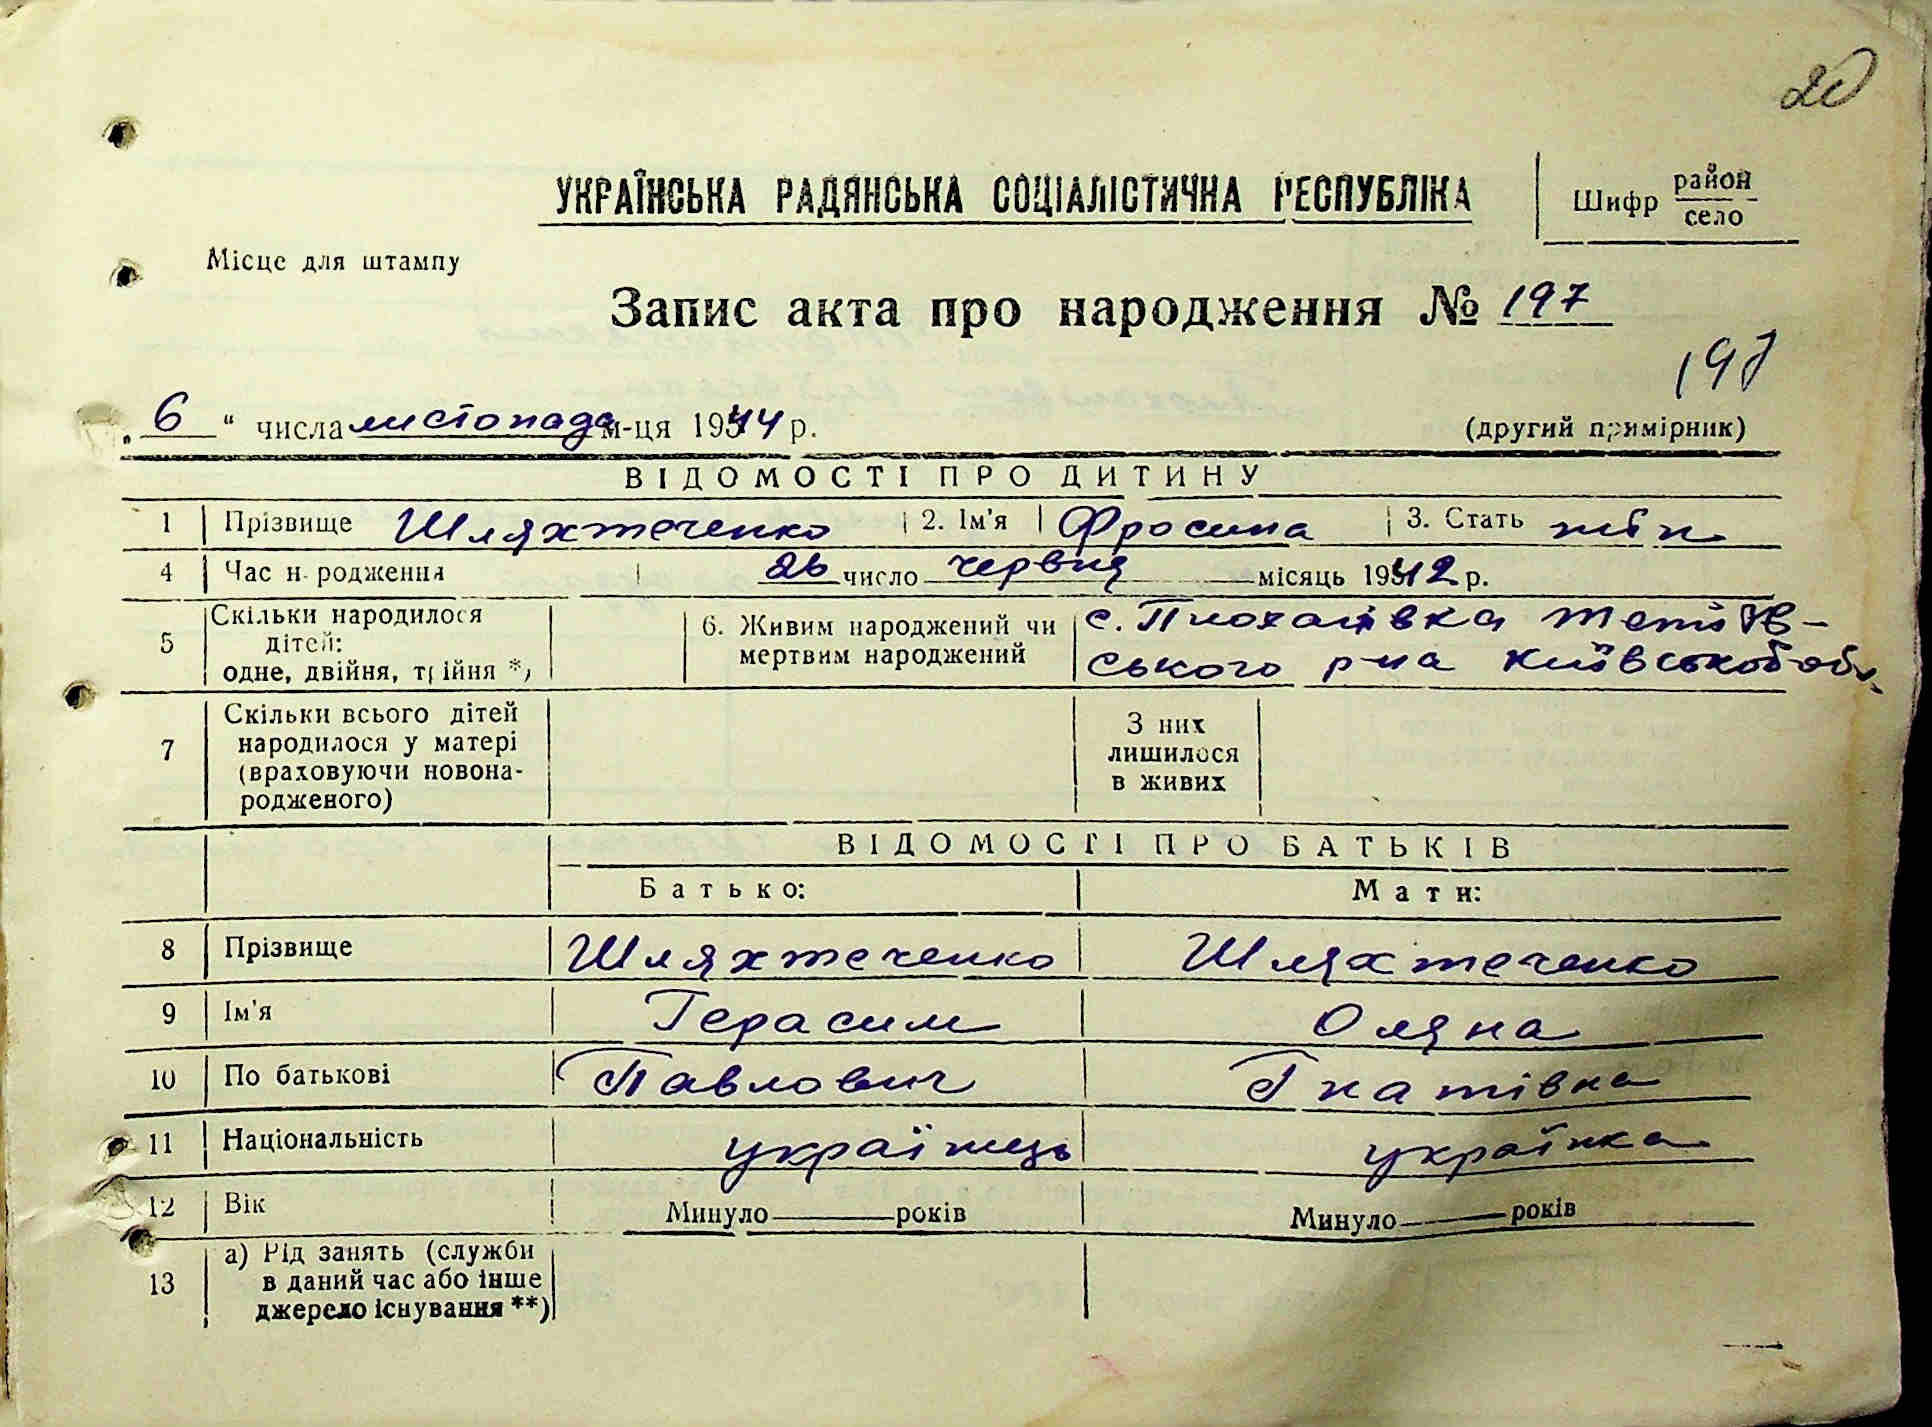 20
УКРАЇНСЬКА РАДЯНСЬКА СОЦІАЛІСТИЧНА РЕСПУБЛІКА
Шифр район
село
Місце для штампу
Запис акта про народження № 197
197
„ 6 “ числа листопада м-ця 1944 р.
(другий примірник)
ВІДОМОСТІ ПРО ДИТИНУ
1 Прізвище Шляхтеченко 2. Ім'я Фросина 3. Стать жін
4 Час народження 26 число червня місяць 1942 р.
5 Скільки народилося дітей: одне, двійня, трійня *)
6. Живим народжений чи мертвим народжений
с. Плоханівка Тетіїв-
ського р-на Київської обл.
7 Скільки всього дітей народилося у матері (враховуючи новонародженого)
З них лишилося в живих
ВІДОМОСТІ ПРО БАТЬКІВ
Батько: Мати:
8 Прізвище Шляхтеченко Шляхтеченко
9 Ім'я Герасим Оляна
10 По батькові Павлович Гнатівна
11 Національність українець українка
12 Вік Минуло — років Минуло — років
13 а) Рід занять (служби
в даний час або інше
джерело існування **)